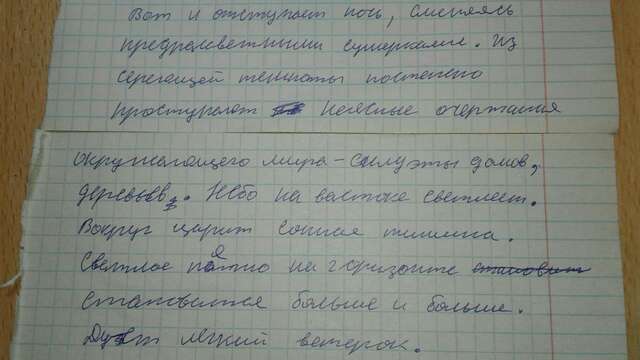 Вот и отступает ночь, сменяясь
предрассветными сумерками. Из
сереющей темноты постепенно
проступают неясные очертания
окружающего мира – силуэты домов,
деревьев. Небо на востоке светлеет.
Вокруг царит сонная тишина.
Светлое пятно на горизонте
становится больше и больше.
Дует легкий ветерок.